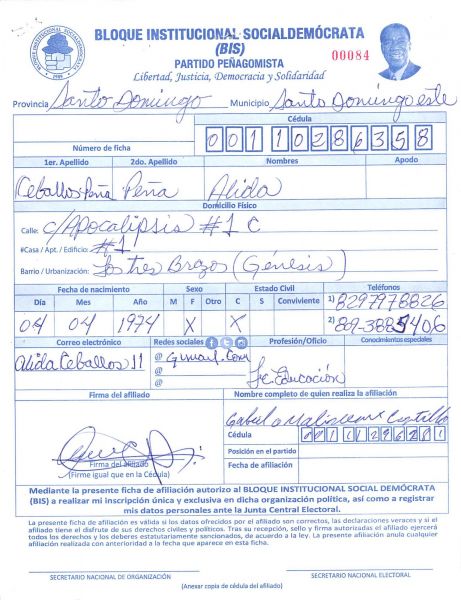 BLOQUE INSTITUCIONAL SOCIALDEMÓCRATA
(BIS)
PARTIDO PEÑAGOMISTA
Libertad, Justicia, Democracia y Solidaridad
00084
BLOQUE INSTITUCIONAL SOCIALDEMOCRATA
Provincia Santo Domingo Municipio Santo Domingo este
Cédula
Número de ficha 00110286358
1er. Apellido 2do. Apellido Nombres Apodo
Ceballos Peña Peña Alida
Domicilio Físico
Calle: c/Apocalipsis #1 C
#Casa / Apt. / Edificio: #1
Barrio / Urbanización: Los Tres Brazos (Génesis)
Fecha de nacimiento Sexo Estado Civil Teléfonos
Día Mes Año M F Otro C S Conviviente 1) 8297978826
04 04 1974 X X 2) 809-3885406
Correo electrónico Redes sociales Profesión/Oficio Conocimientos especiales
Alida Ceballos 11 @ Gmail.com
@
@ Lic Educación
Firma del afiliado Nombre completo de quien realiza la afiliación
Cédula
Posición en el partido
Firma del afiliado Fecha de afiliación
(Firme igual que en la Cédula)
Mediante la presente ficha de afiliación autorizo al BLOQUE INSTITUCIONAL SOCIAL DEMÓCRATA
(BIS) a realizar mi inscripción única y exclusiva en dicha organización política, así como a registrar
mis datos personales ante la Junta Central Electoral.
La presente ficha de afiliación es válida si los datos ofrecidos por el afiliado son correctos, las declaraciones veraces y si el
afiliado tiene el disfrute de sus derechos civiles y políticos. Tras su recepción, sello y firma autorizadas el afiliado ejercerá
todos los derechos y los deberes estatutariamente sancionados, de acuerdo a la ley. La presente afiliación anula cualquier
afiliación realizada con anterioridad a la fecha que aparece en esta ficha.
SECRETARIO NACIONAL DE ORGANIZACIÓN SECRETARIO NACIONAL ELECTORAL
(Anexar copia de cédula del afiliado)